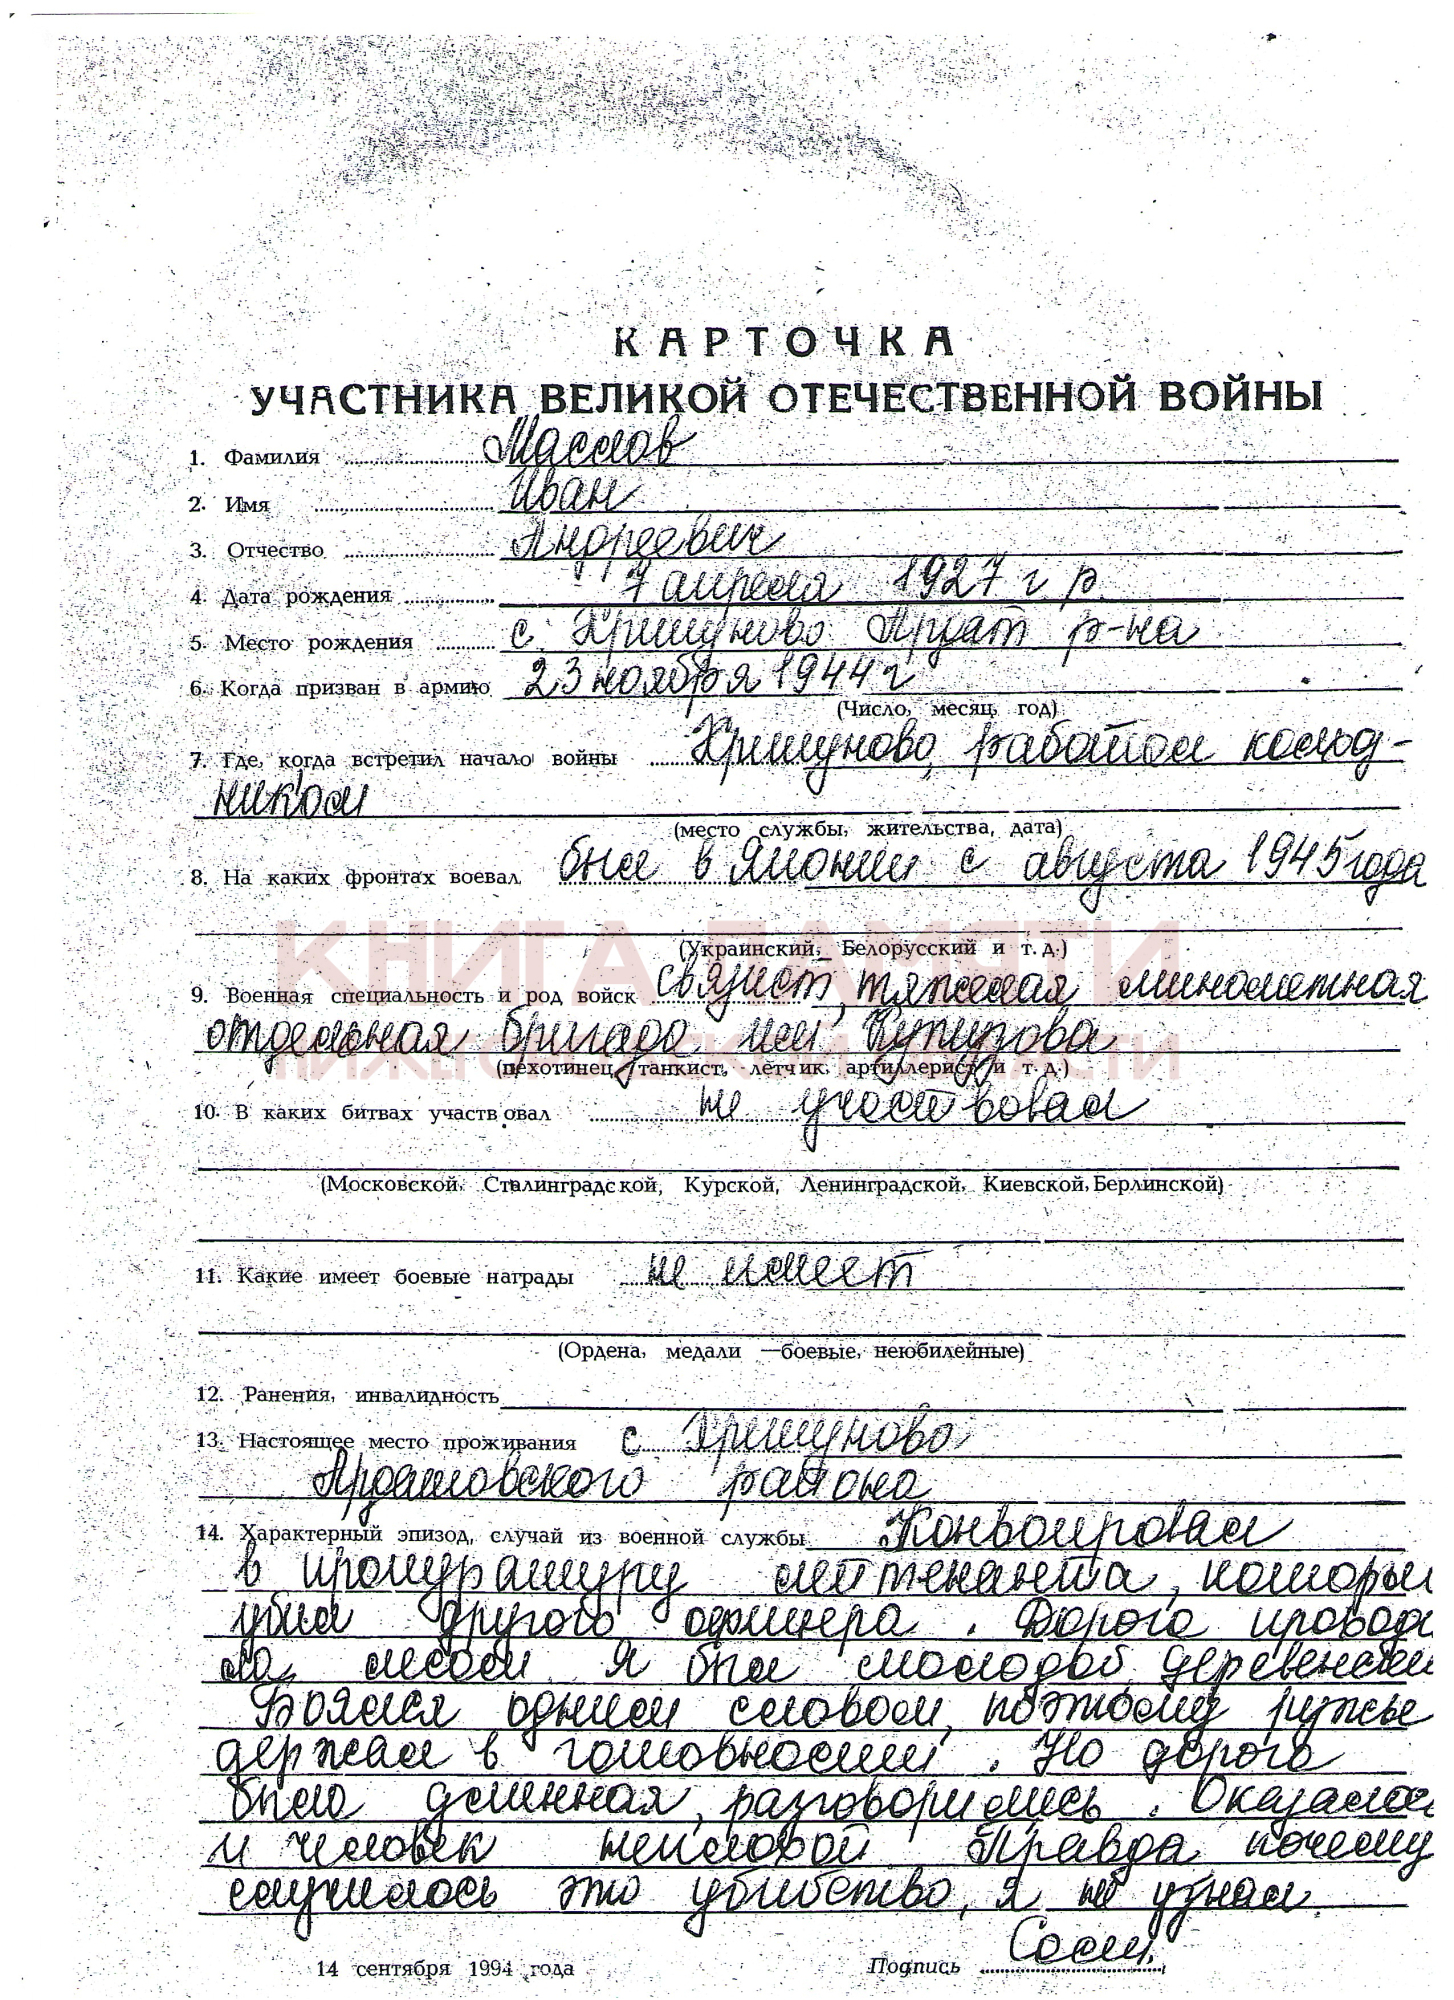 КАРТОЧКА
УЧАСТНИКА ВЕЛИКОЙ ОТЕЧЕСТВЕННОЙ ВОЙНЫ
1. Фамилия Маслов
2. Имя Иван
3. Отчество Андреевич
4. Дата рождения 7 апреля 1927 г р.
5. Место рождения с. Хрипуново Ардат р-на
6. Когда призван в армию 23 ноября 1944 г
(Число, месяц, год)
7. Где, когда встретил начало войны Хрипуново, работал колход-
ником
(место службы, жительства, дата)
8. На каких фронтах воевал был в Японии с августа 1945 года
КНИГА ПАМЯТИ
(Украинский, Белорусский и т. д.)
9. Военная специальность и род войск связист, тяжелая минометная
отдельная бригада им Кутузова
НИЖЕГОРОДСКОЙ ОБЛАСТИ
(пехотинец, танкист, летчик, артиллерист и т. д.)
10. В каких битвах участвовал не участвовал
(Московской, Сталинградской, Курской, Ленинградской, Киевской, Берлинской)
11. Какие имеет боевые награды не имеет
(Ордена, медали —боевые, неюбилейные)
12. Ранения, инвалидность
13. Настоящее место проживания с Хрипуново
Ардатовского района
14. Характерный эпизод, случай из военной службы Конвоировал
в прокуратуру лейтенанта, которы
убил другого офицера. Дорога проводи
ла лесом Я был молодой деревенски
Боялся одним словом, поэтому ружье
держал в готовности. Но дорога
была длинная, разговорились. Оказалос
и человек неплохой. Правда почему
случилось это убийство, я не узнал.
14 сентября 1994 года Подпись